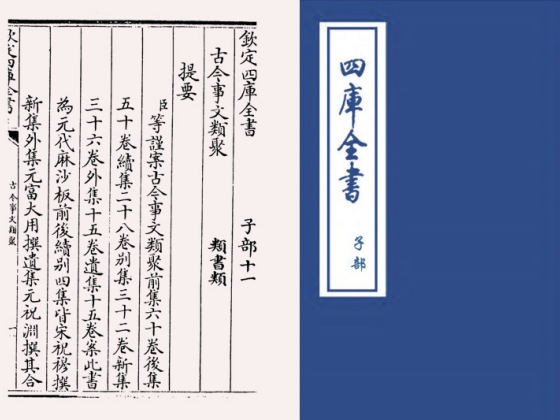 欽定四庫全書 子部十一
古今事文類聚 類書類
提要
臣等謹案古今事文類聚前集六十卷後集
五十卷續集二十八卷别集三十二卷新集
三十六卷外集十五卷遺集十五卷案此書
為元代麻沙板前後續别四集皆宋祝穆撰
新集外集元富大用撰遺集元祝淵撰其合
欽定四庫全書
古今事文類聚
一
四庫全書
子部